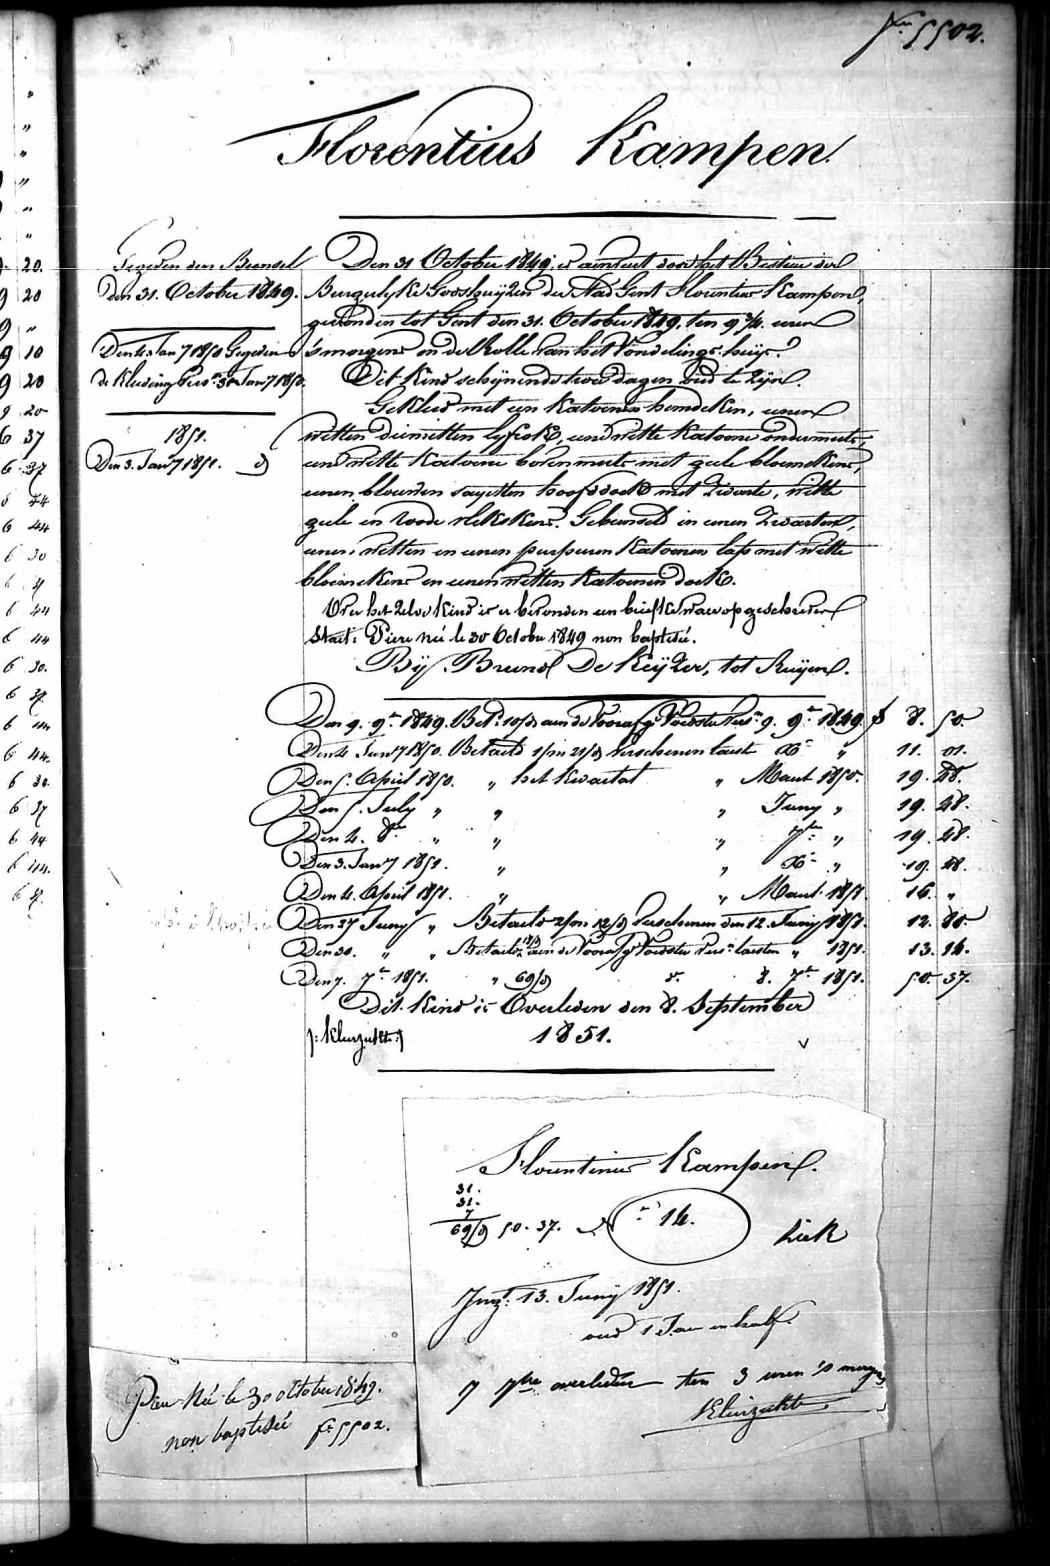 fº 5502.
Florentius Kampen.
Gegeven den Bunsel
den 31. October 1849.
Den 4 Janry 1850 Gegeven
de Kleeding Vers. 30 Janry 1850.
1851.
Den 3. Janry 1851.
Den 31 October 1849, is aenveert door het Bestuer der
Burgerlyke Godshuyzen der Stad Gent Florentius Kampen,
gevonden tot Gent den 31. October 1849, ten 9 3/4 uren
's morgens in de Rolle van het Vondelings huys.
Dit kind schynende twee dagen oud te zyn.
Gekleed met een katoenen hemdeken, eenen
witten diemitten lyfrok, eene witte katoene ondermuts,
eene witte katoene bovenmuts met geele bloemekens,
eenen blauwen sayetten hoofddoek met zwarte, witte
geele en roode vlekskens. Gebunseld in eenen zwarten,
eenen witten en eenen purperen katoenen lap met witte
bloemekens en eenen witten katoenen doek.
Over het zelve kind is er bevonden een briefke waer op geschreven
staet: Pierre né le 30 Octobre 1849 non baptisé.
By Bruno De Keyzer, tot Kuyen.
Den 9. 9re 1849. Bet. 10/d aen de Voorafg. Voedster Vers. 9. 9re 1849. f 8. 50.
Den 4 Janry 1850. Betaeld 1/m 21/d verschenen laest Xre " 11. 01.
Den 5. April 1850. " het kwartael " Maert 1850. 19. 48.
Den 5. July " " " Juny " 19. 48.
Den 4. 8re " " " 7bre " 19. 48.
Den 3. Janry 1851. " " Xre " 19. 48.
Den 4. April 1851. " " Maert 1851 16. "
Den 27 Juny " Betaeld 2/m 12/d verschenen den 12. Juny 1851. 12. 80
Den 30. " " Betaeld 18/d aen de Voorafg. Voedster Vers. laesten " 1851. 13. 14.
Den 7. 7re 1851. " 69/d d. 8. 7re 1851. 50. 37.
Dit kind is Overleden den 8. September
1851.
Florentinus Kampen.
31.
31.
7
69/d 50. 37.
14.
Ziek
Ing. 13. Juny 1851.
oud 1 Jaer en half.
7 7bre overleden ten 3 uren 's morgens
Pierre Né le 30 octobre 1849.
non baptisée fº 5502.